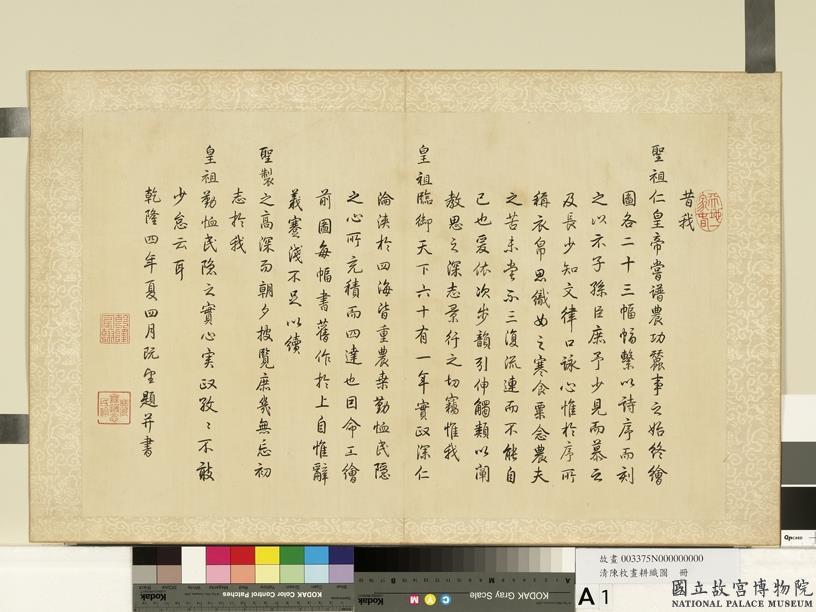 昔我
聖祖仁皇帝嘗譜農功蠶事之始終繪
圖各二十三幅幅繫以詩序而刻
之以示子孫臣庶予少見而慕之
及長少知文律口詠心惟於序所
稱衣帛思織女之寒食粟念農夫
之苦未嘗不三復流連而不能自
已也爰依次步韻引伸觸類以闡
教思之深志景行之切竊惟我
皇祖臨御天下六十有一年實政深仁
淪浹於四海皆重農桑勤恤民隱
之心所充積而四達也因命工繪
前圖每幅書舊作於上自惟辭
義蹇淺不足以續
聖製之高深而朝夕披覽庶幾無忘初
志於我
皇祖勤恤民隱之實心實政孜孜不敢
少怠云耳
乾隆四年夏四月既望題并書
故畫 003375N000000000
清陳枚畫耕織圖 冊
A 1
國立故宮博物院
NATIONAL PALACE MUSEUM
Kodak Color Control Patches
KODAK Gray Scale
Kodak
C Y M